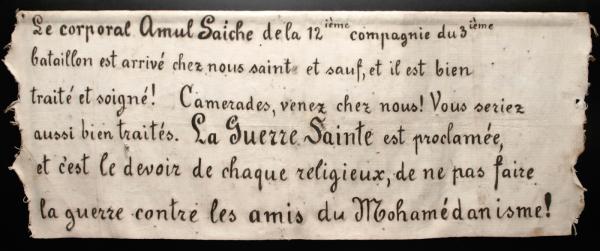 Le corporal Amul Saiche de la 12ième compagnie du 3ième
bataillon est arrivé chez nous saint et sauf, et il est bien
traité et soigné! Camerades, venez chez nous! Vous seriez
aussi bien traités. La Guerre Sainte est proclamée,
et c'est le devoir de chaque religieux, de ne pas faire
la guerre contre les amis du Mohamédanisme!